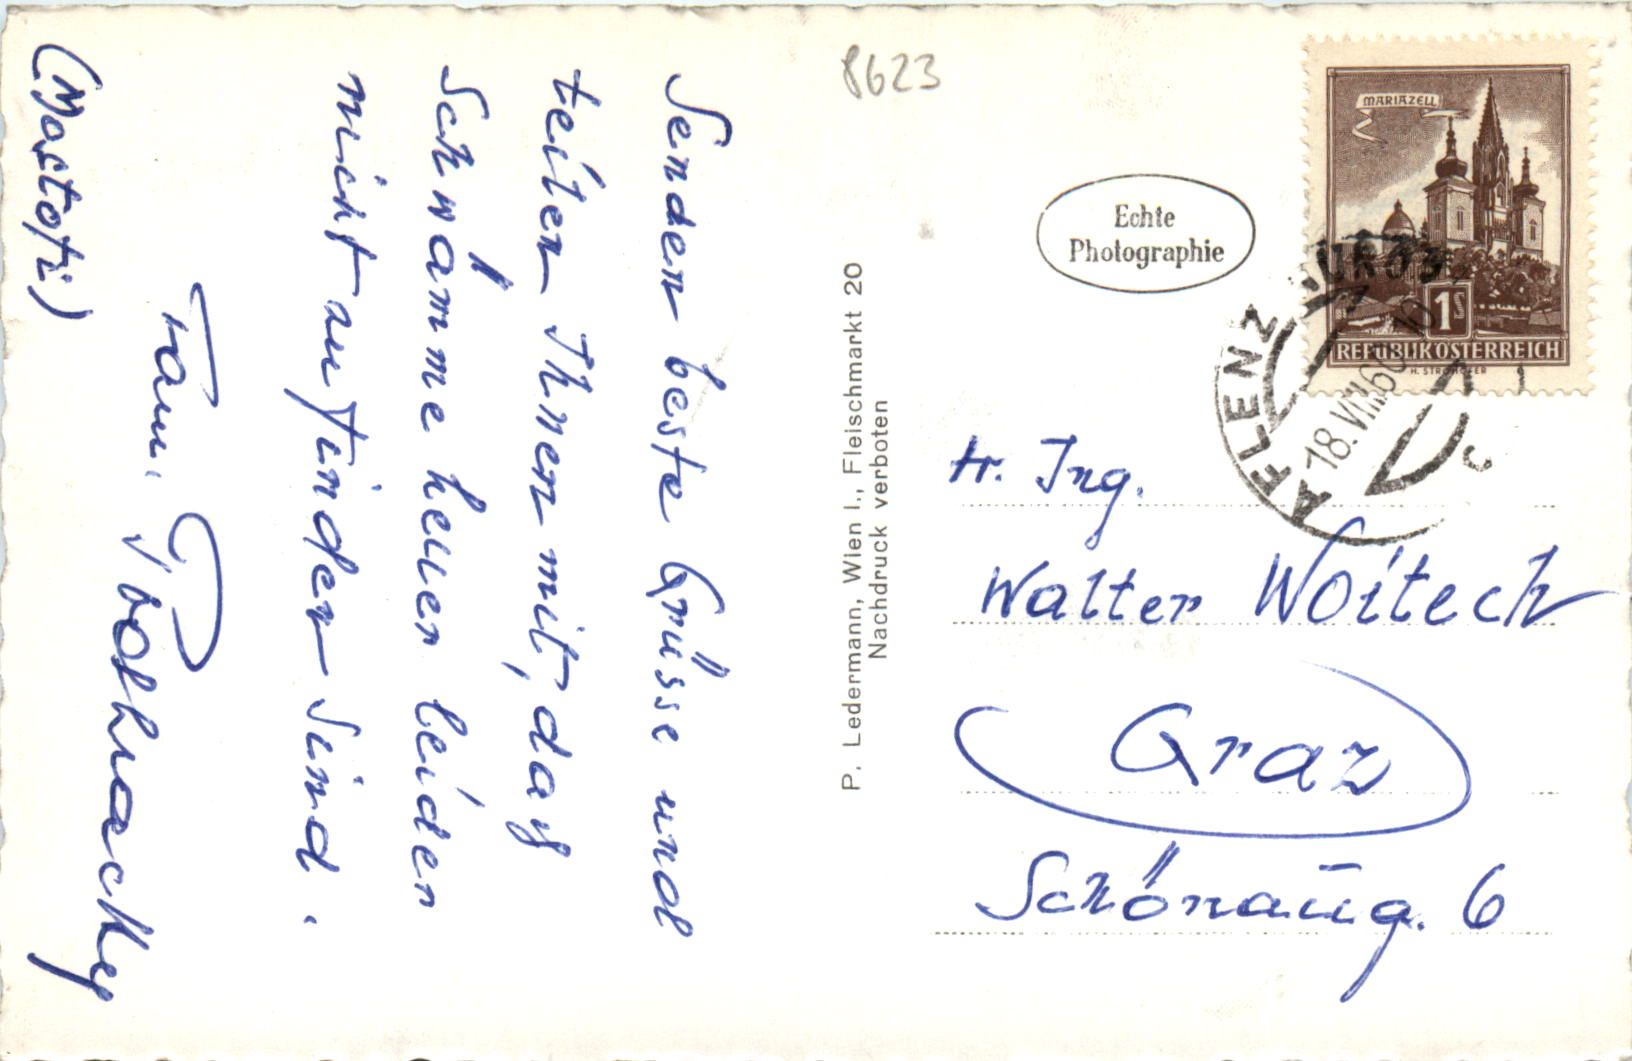 Senden beste Grüsse und
teilen Ihnen mit, daß
Schwämme heuer leider
nicht aufzufinden sind.
Fam.
8623
P. Ledermann, Wien I., Fleischmarkt 20
Nachdruck verboten
Echte
Photographie
MARIAZELL
1S
REPUBLIK ÖSTERREICH
AFLENZ KURORT
18.VIII.60 10
Hr. Ing.
Walter Woitech
Graz
Schönaug. 6